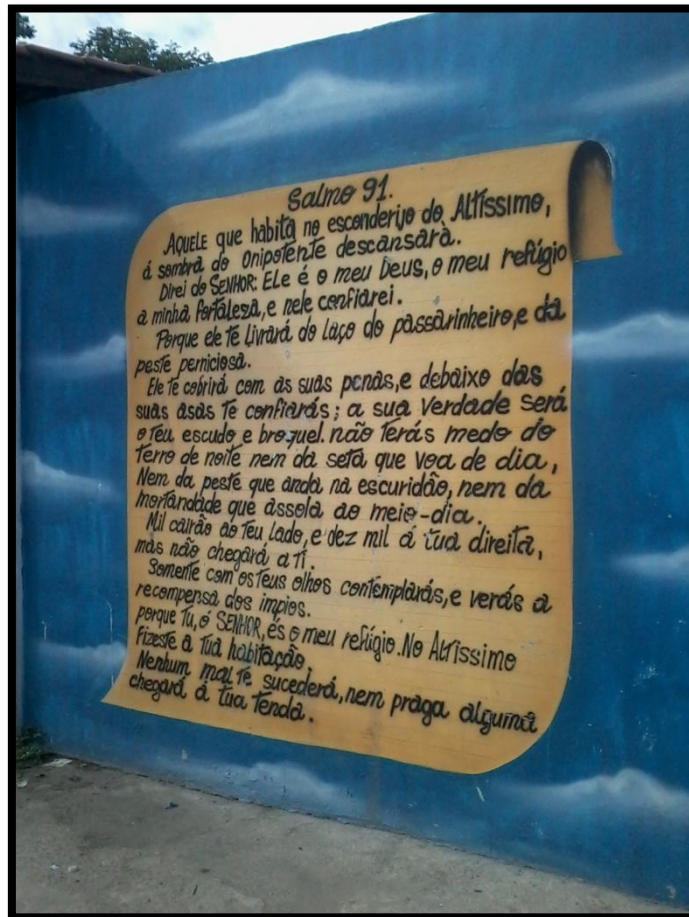 Salmo 91.
AQUELE que habita no esconderijo do Altíssimo,
á sombra do Onipotente descansarà.
Direi do SENHOR: Ele é o meu Deus, o meu refúgio
a minha fortaleza, e nele confiarei.
Porque ele te livrará do laço do passarinheiro, e da
peste perniciosa.
Ele te cobrirá com as suas penas, e debaixo das
suas asas te confiarás; a sua verdade será
o teu escudo e broquel. não terás medo do
terro de noite nem da seta que voa de dia,
Nem da peste que anda na escuridão, nem da
mortandade que assola ao meio-dia.
Mil cairão ao teu lado, e dez mil á tua direita,
mas não chegará a ti.
Somente com os teus olhos contemplarás, e verás a
recompensa dos impios.
porque tu, ó SENHOR, és o meu refúgio. No Altíssimo
fizeste a tua habitação.
Nenhum mal te sucederá, nem praga alguma
chegará á tua tenda.